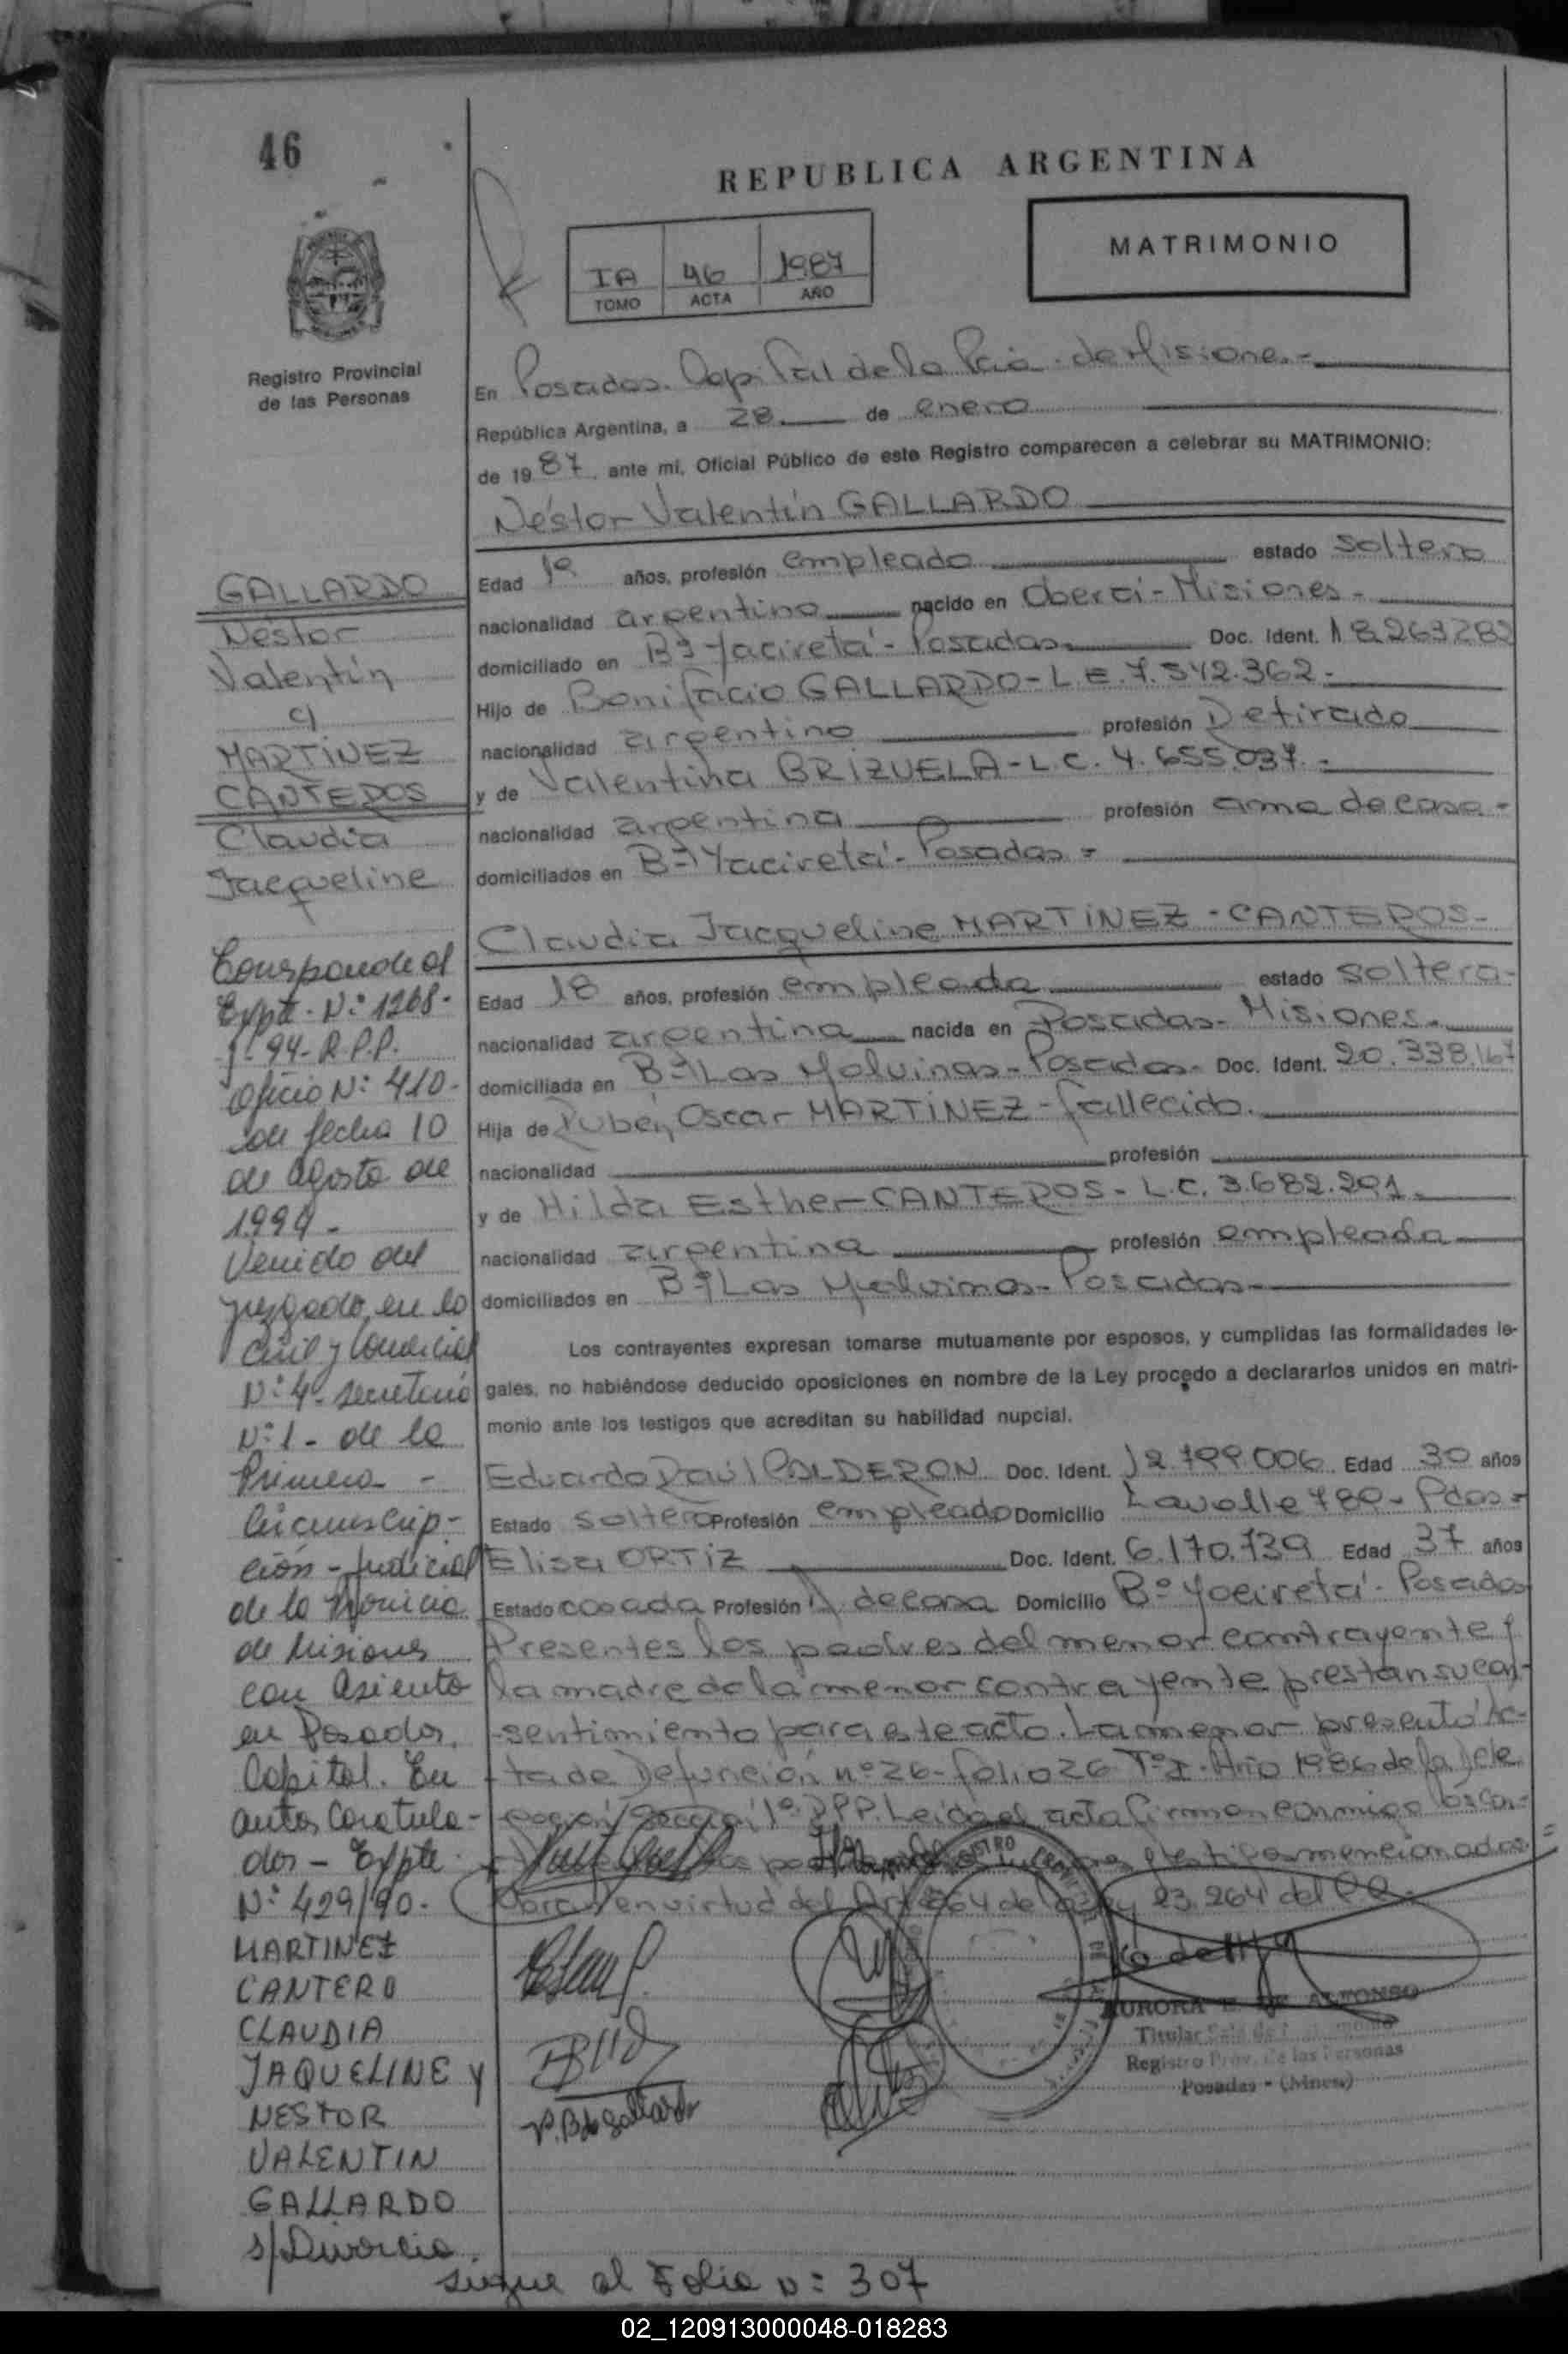 46
REPUBLICA ARGENTINA
MATRIMONIO
IA 46 1987
TOMO ACTA AÑO
Registro Provincial
de las Personas
En Posadas. Capital de la Pcia. de Misiones.-
República Argentina, a 28 de enero
de 1987, ante mi, Oficial Público de este Registro comparecen a celebrar su MATRIMONIO:
Néstor Valentín GALLARDO
Edad años, profesión empleado estado soltero
nacionalidad argentino nacido en Oberá - Misiones.-
domiciliado en Bº Yaciretá - Posadas. Doc. Ident. 18.263.282
Hijo de Bonifacio GALLARDO - L.E. 7.542.362.-
nacionalidad argentino profesión Retirado
y de Valentina BRIZUELA - L.C. 4.655.037.-
nacionalidad argentina profesión ama de casa -
domiciliados en Bº Yaciretá - Posadas -
Claudia Jacqueline MARTINEZ - CANTEROS -
Edad 18 años, profesión empleada estado soltera -
nacionalidad argentina nacida en Posadas - Misiones.
domiciliada en Bº Las Malvinas - Posadas - Doc. Ident. 20.338.167
Hija de Rubén Oscar MARTINEZ - fallecido.
nacionalidad profesión
y de Hilda Esther CANTEROS - L.C. 3.682.201.
nacionalidad argentina profesión empleada
domiciliados en Bº Las Malvinas - Posadas -
Los contrayentes expresan tomarse mutuamente por esposos, y cumplidas las formalidades le-
gales, no habiéndose deducido oposiciones en nombre de la Ley procedo a declararlos unidos en matri-
monio ante los testigos que acreditan su habilidad nupcial.
Eduardo Raúl CALDERON Doc. Ident. 12.799.006 Edad 30 años
Estado soltero Profesión empleado Domicilio Lavalle 780 - Pdas -
Elisa ORTIZ Doc. Ident. 6.170.739 Edad 37 años
Estado casada Profesión A. de casa Domicilio Bº Yaciretá - Posadas
Presentes los padres del menor contrayente y
la madre de la menor contrayente prestan su con-
sentimiento para este acto. La menor presentó Ac-
ta de Defunción nº 26 - folio 26 Tº I - Año 1986 de la Dele
gación Sección 1º RPP. Leída el acta firman conmigo los con-
testigos mencionados
en virtud del Art. 264 de la Ley 23.264 del CC.
AURORA E. DE ALFONSO
Titular
Registro Prov. de las Personas
Posadas - (Mnes.)
GALLARDO
Néstor
Valentín
c/
MARTINEZ
CANTEROS
Claudia
Jacqueline
Corresponde al
Expte. Nº 1268-
94 - R.P.P.
Oficio Nº 410-
de fecha 10
de agosto de
1994 -
Venido del
juzgado en lo
Civil y Comercial
Nº 4 - Secretaría
Nº 1 - de la
Primera -
Circunscrip-
ción - Judicial
de la Provincia
de Misiones
con asiento
en Posadas.
Capital. En
autos Caratula-
dos - Expte.
Nº 429/90.
MARTINEZ
CANTERO
CLAUDIA
JAQUELINE Y
NESTOR
VALENTIN
GALLARDO
s/Divorcio.
sigue al Folio Nº 307
02_120913000048-018283